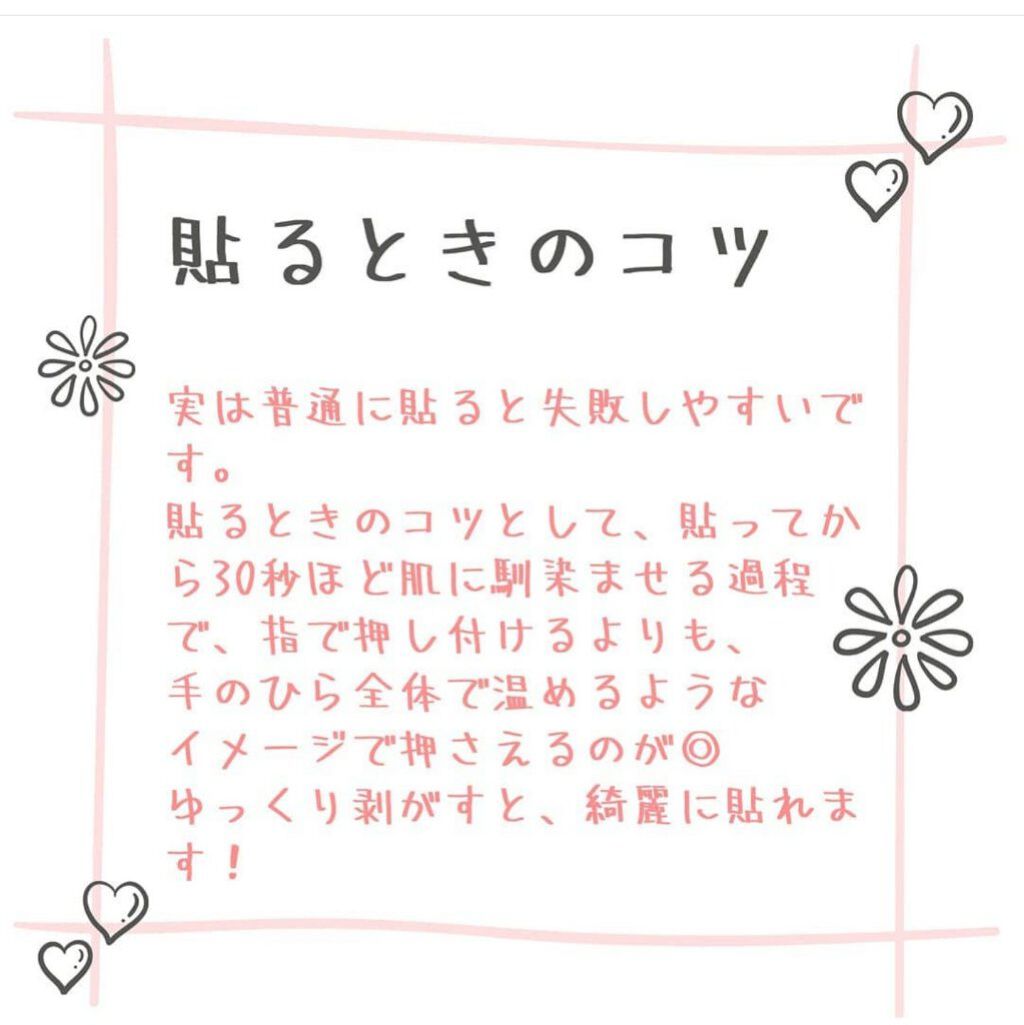 貼るときのコツ
実は普通に貼ると失敗しやすいで
す。
貼るときのコツとして、貼ってか
ら30秒ほど肌に馴染ませる過程
で、指で押し付けるよりも、
手のひら全体で温めるような
イメージで押さえるのが◎
ゆっくり剥がすと、綺麗に貼れま
す！